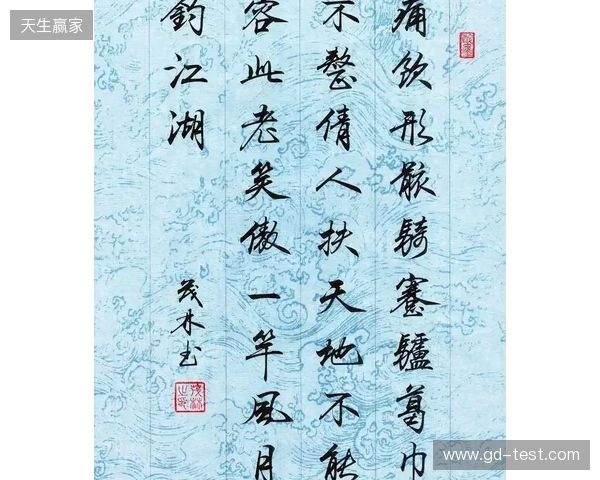 天生赢家
痛飲形骸騎蹇驢葛巾
不整倩人扶天地不能
容此老笑傲一竿風月
釣江湖
茂林书
www.gd-test.com